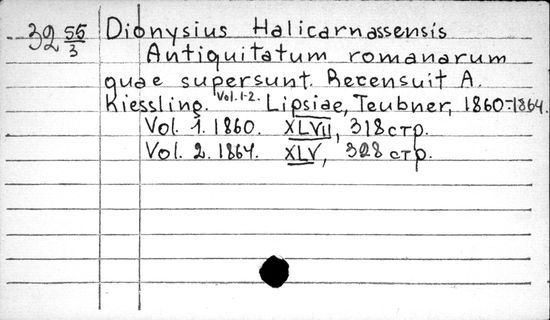 32 55/3 Dionysius Halicarnassensis
Antiquitatum romanarum
quae supersunt. Recensuit A.
Kiessling. Vol. 1-2. Lipsiae, Teubner, 1860-1864.
Vol. 1. 1860. XLVII, 318 стр.
Vol. 2. 1864. XLV, 328 стр.